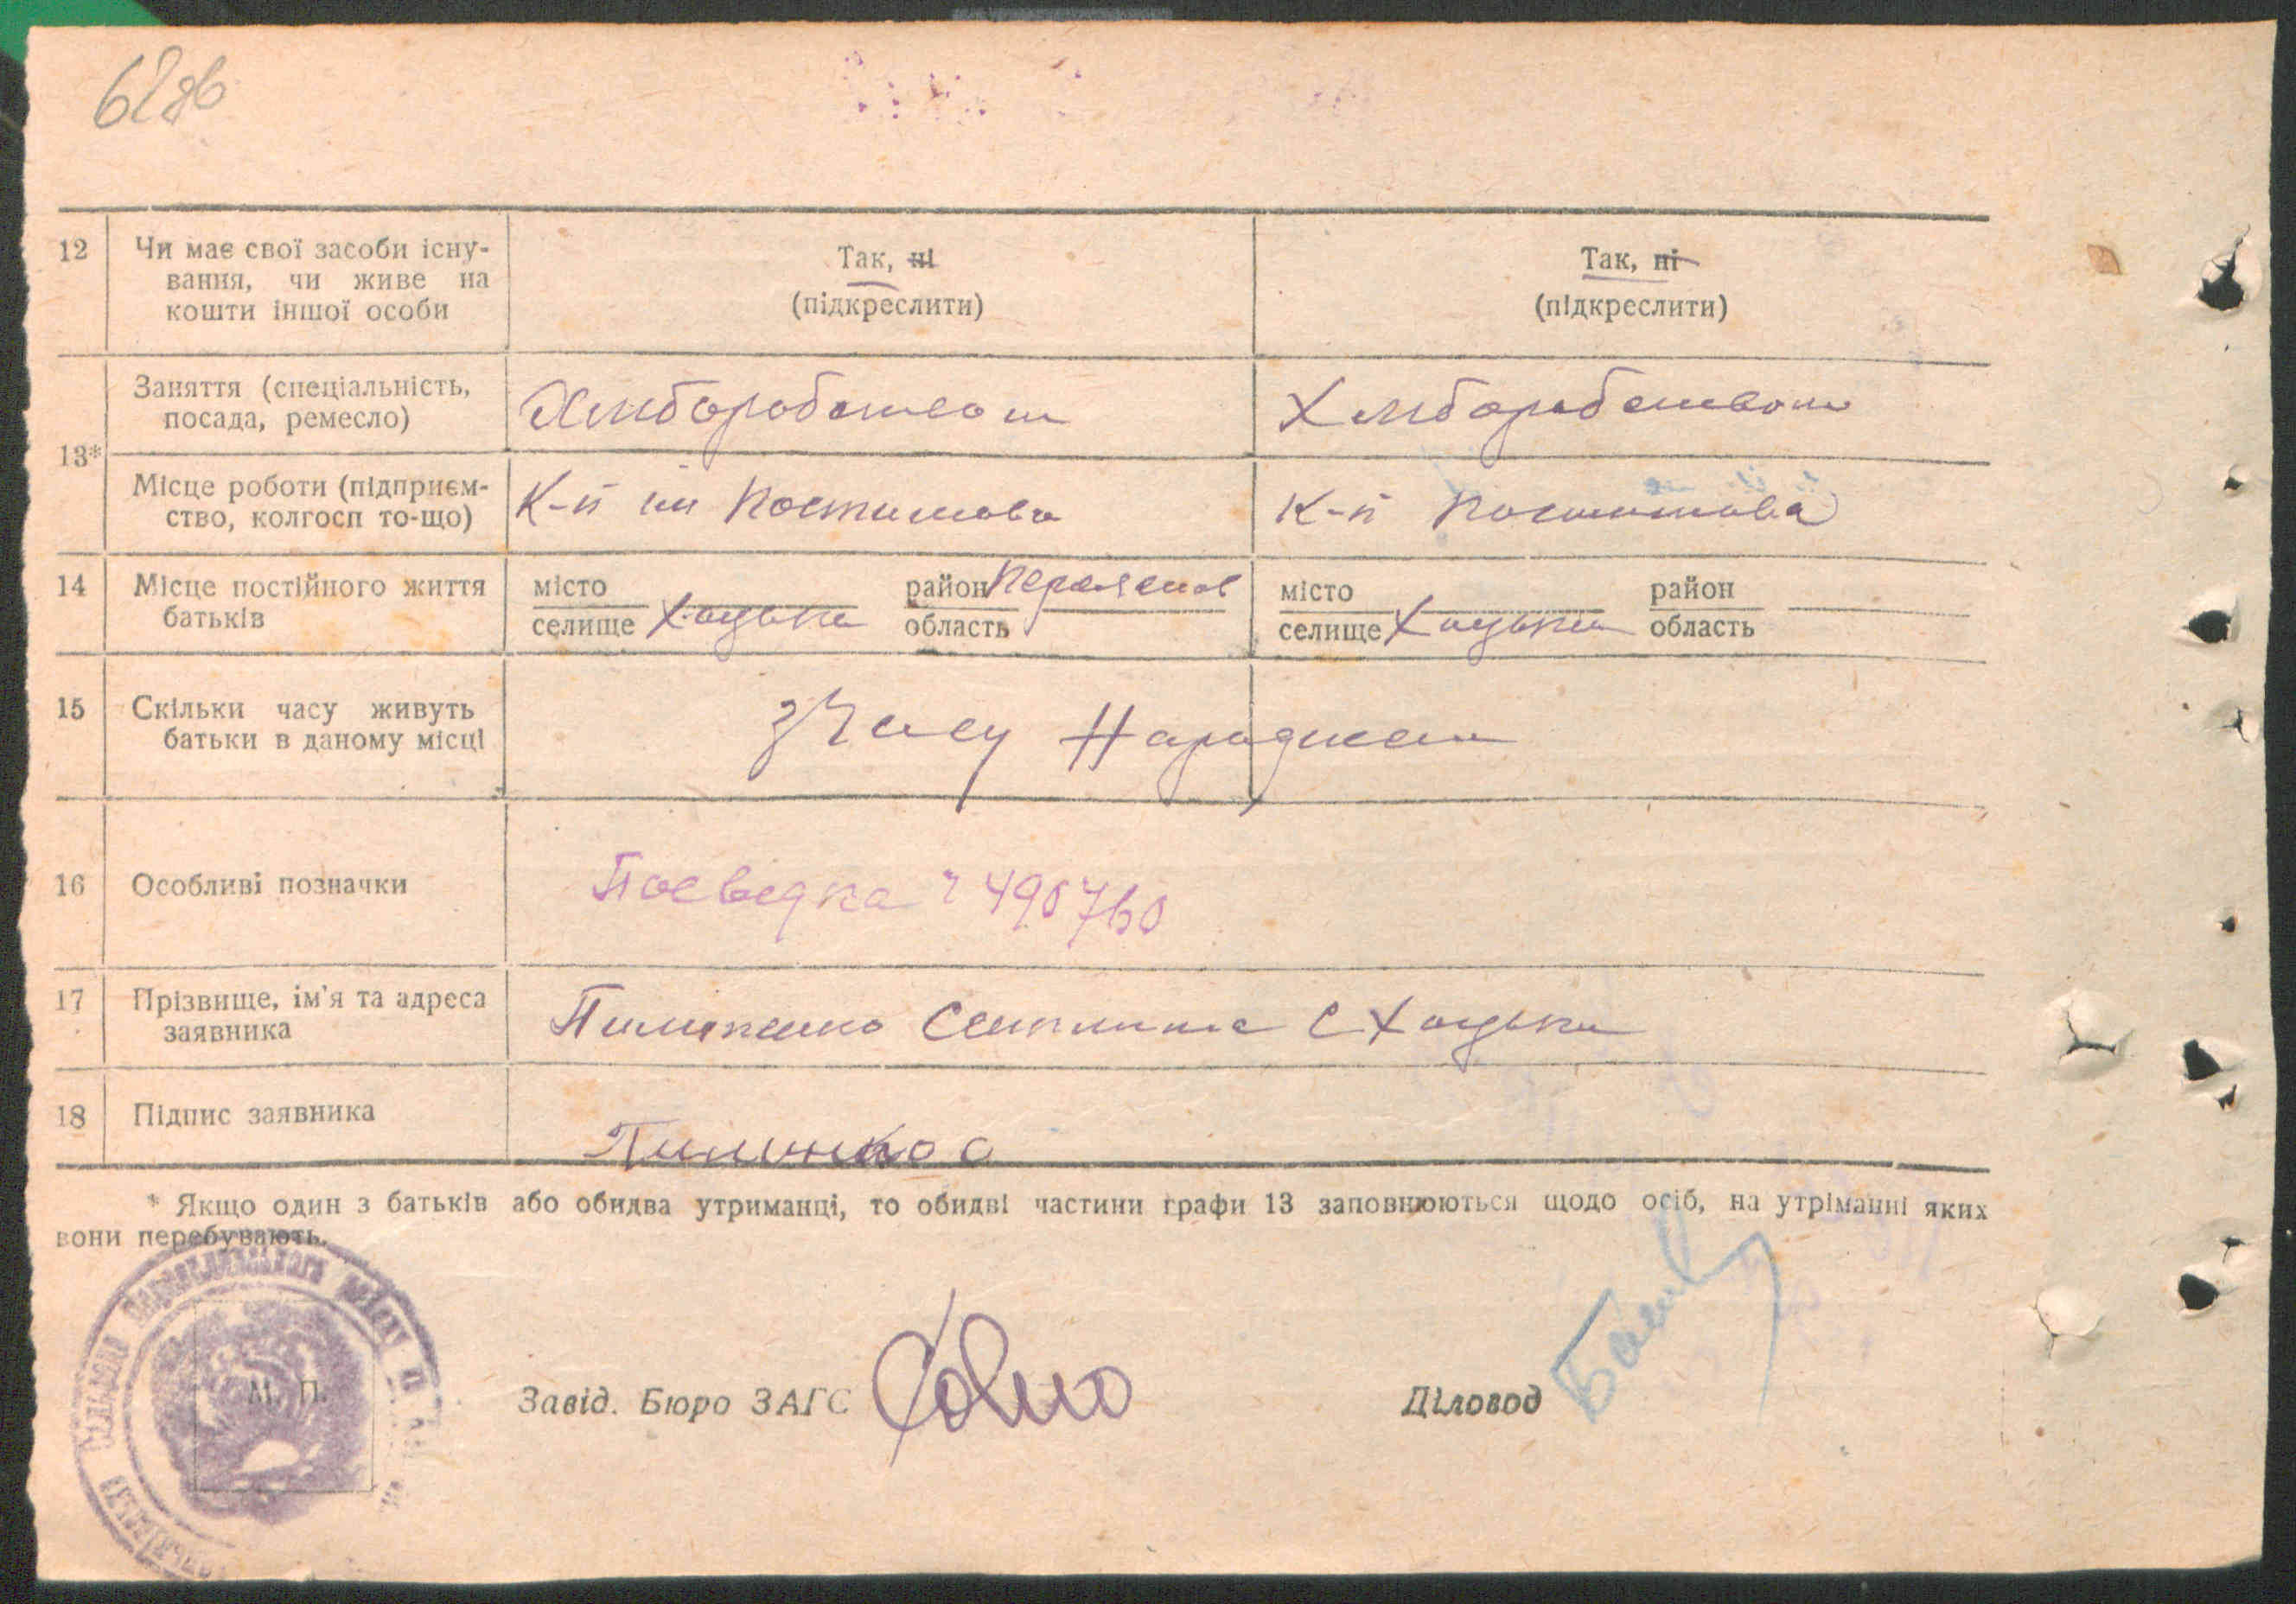 62зв
12 Чи має свої засоби існу-
вання, чи живе на
кошти іншої особи
Так, ні
(підкреслити)
Так, ні
(підкреслити)
13*
Заняття (спеціальність,
посада, ремесло)
Хліборобством
Хліборобством
Місце роботи (підприєм-
ство, колгосп то-що)
К-п ім Постишева
К-п Постишева
14 Місце постійного життя
батьків
місто
селище Хоцьки
район
область
місто
селище Хоцьки
район
область
15 Скільки часу живуть
батьки в даному місці
з Часу Народжен
16 Особливі позначки
Посведка 490760
17 Прізвище, ім'я та адреса
заявника
С Хоцьки
18 Підпис заявника
* Якщо один з батьків або обидва утриманці, то обидві частини графи 13 заповнюються щодо осіб, на утріманні яких
вони перебувають.
М. П.
Завід. Бюро ЗАГС
Діловод